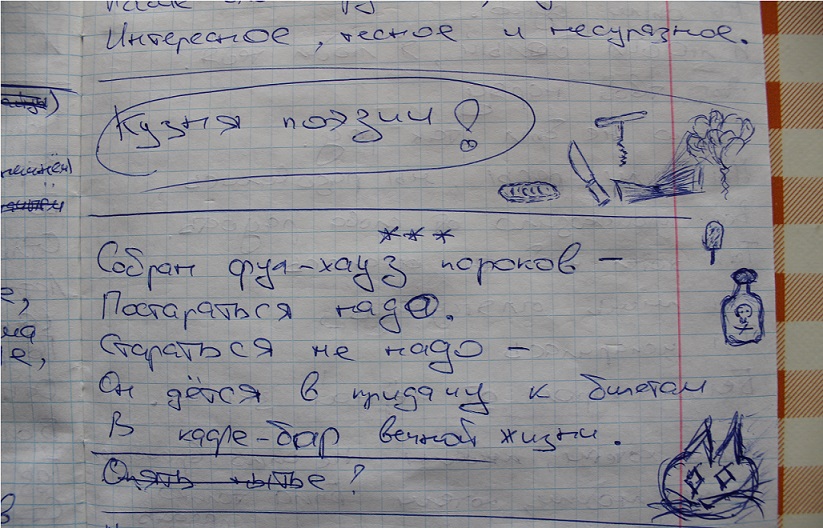 Интересное, тесное и несуразное.
Кузня поэзии!
***
Собран фуа-хауз пороков –
Постараться надо.
Стараться не надо –
Он дётся в придачу к билетам
В кафе-бар вечной жизни.
Опять нытье?